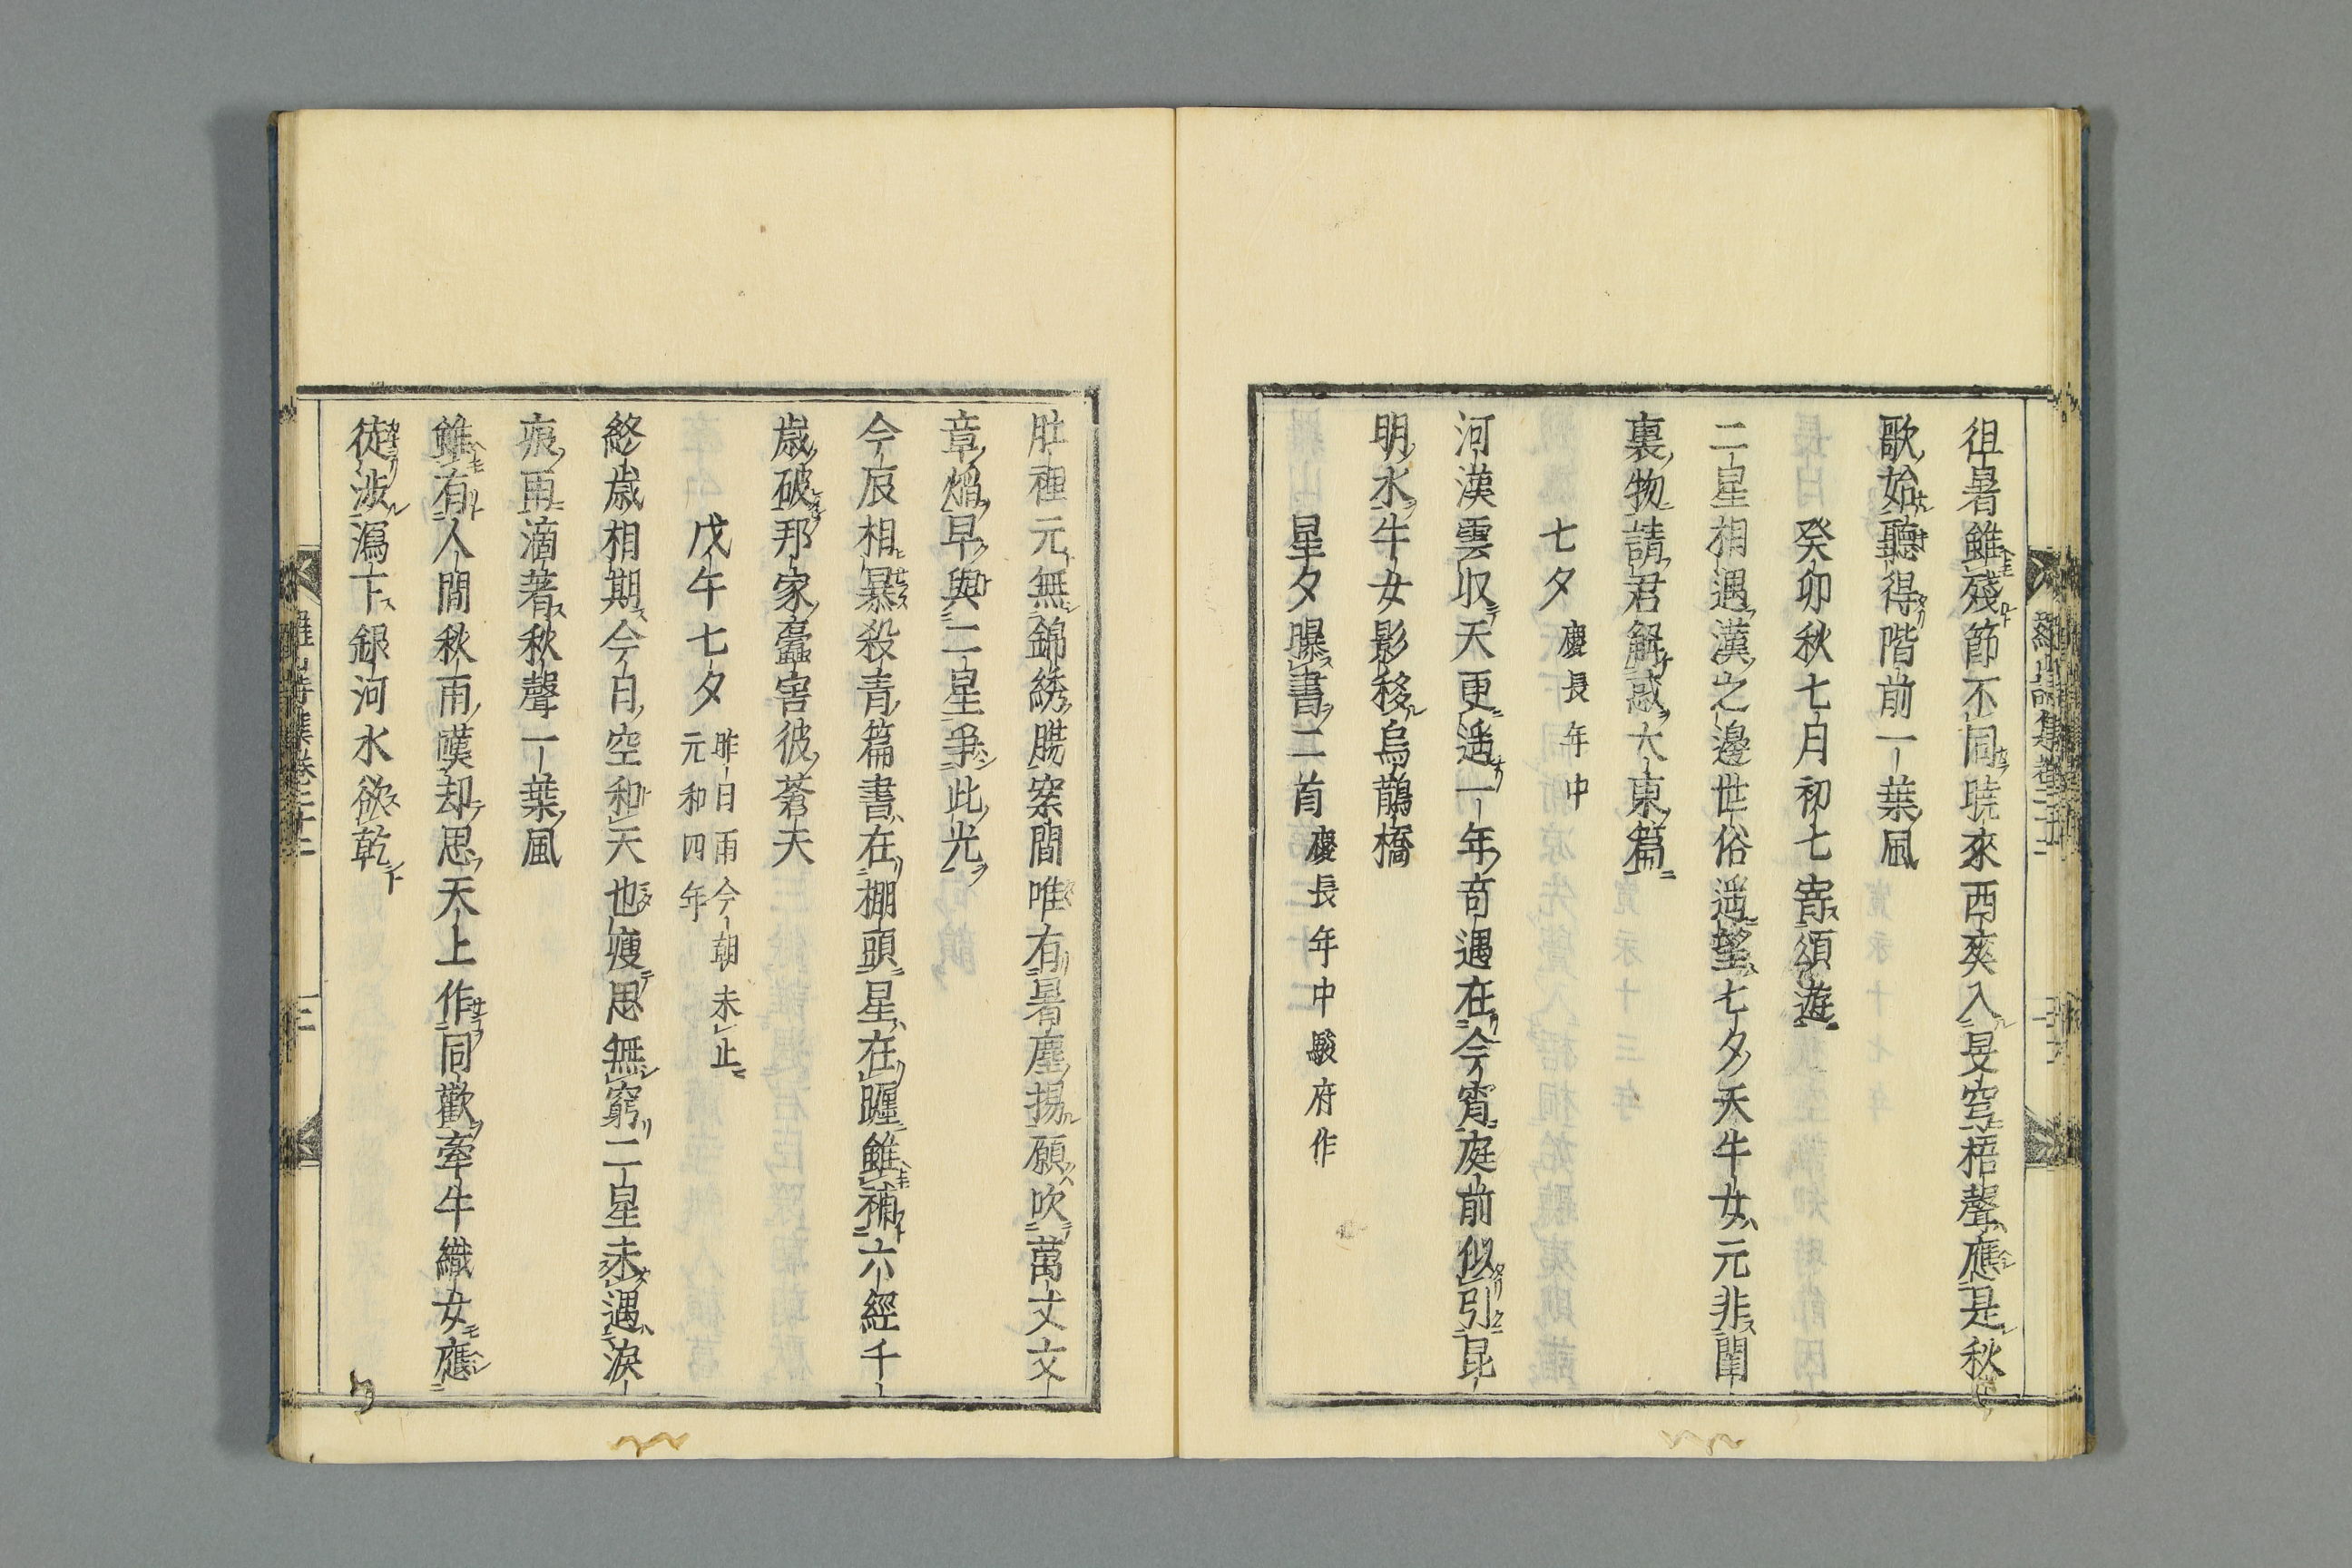 徂暑雖殘節不同曉來西爽入旻穹梧聲應是秋
歌始聽得階前一葉風
癸卯秋七月初七寄頌遊
二星相遇漢之邊世俗遙望七夕天牛女元非閨
裏物請君解惑大東篇
七夕 慶長年中
河漢雲収天更遙一年奇遇在今宵庭前似引昆
明水牛女影移烏鵲橋
星夕曝書二首 慶長年中駿府作
肚裡元無錦綉腸案間唯有暑塵揚願吹萬丈文
章焰早與二星爭此光
今辰相暴殺青篇書在棚頭星在躔雖補六經千
歳破邦家蠹害彼蒼天
戊午七夕 昨日雨今朝未止 元和四年
終歳相期今日空和天也瘦思無窮二星未遇淚
痕雨滴著秋聲一葉風
雖有人間秋雨嘆却思天上作同歡牽牛織女應
徒涉瀉下銀河水欲乾